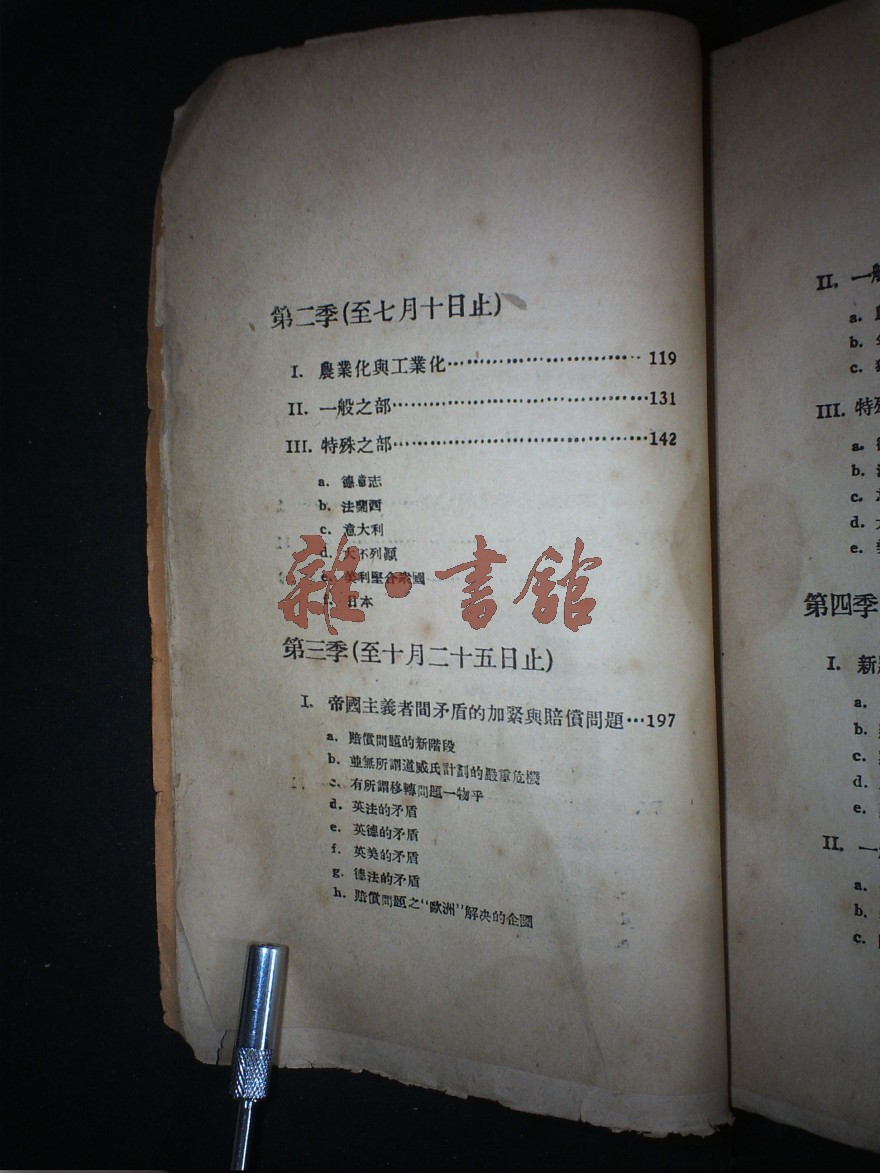 第二季(至七月十日止)
I. 農業化與工業化…………………………119
II. 一般之部…………………………………131
III. 特殊之部…………………………………142
a. 德意志
b. 法蘭西
c. 意大利
d. 大不列顛
e. 美利堅合衆國
f. 日本
雜·書館
第三季(至十月二十五日止)
I. 帝國主義者間矛盾的加緊與賠償問題…197
a. 賠償問題的新階段
b. 並無所謂道威氏計劃的嚴重危機
c. 有所謂移轉問題一物乎
d. 英法的矛盾
e. 英德的矛盾
f. 英美的矛盾
g. 德法的矛盾
h. 賠償問題之"歐洲"解决的企圖
II. 一般
a.
b.
c.
III. 特殊
a.
b.
c.
d.
e.
第四季
I. 新
a.
b.
c.
d.
e.
II. 一
a.
b.
c.